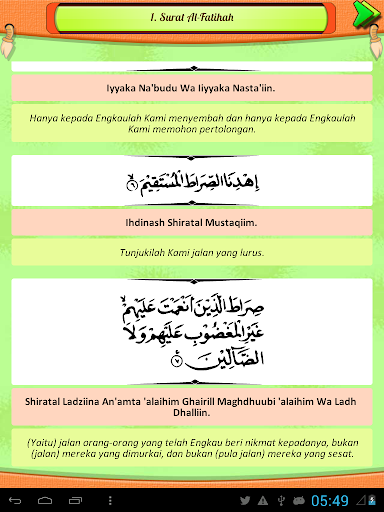 1. Surat Al-Fatihah
Iyyaka Na'budu Wa Iiyyaka Nasta'iin.
Hanya kepada Engkaulah Kami menyembah dan hanya kepada Engkaulah
Kami memohon pertolongan.
اِهْدِنَا الصِّرَاطَ الْمُسْتَقِيْمَ ۙ ٦
Ihdinash Shiratal Mustaqiim.
Tunjukilah Kami jalan yang lurus.
صِرَاطَ الَّذِيْنَ اَنْعَمْتَ عَلَيْهِمْ ۙ
غَيْرِ الْمَغْضُوْبِ عَلَيْهِمْ وَلَا
الضَّاۤلِّيْنَ ٧
Shiratal Ladziina An'amta 'alaihim Ghairill Maghdhuubi 'alaihim Wa Ladh
Dhalliin.
(Yaitu) jalan orang-orang yang telah Engkau beri nikmat kepadanya, bukan
(jalan) mereka yang dimurkai, dan bukan (pula jalan) mereka yang sesat.
05:49